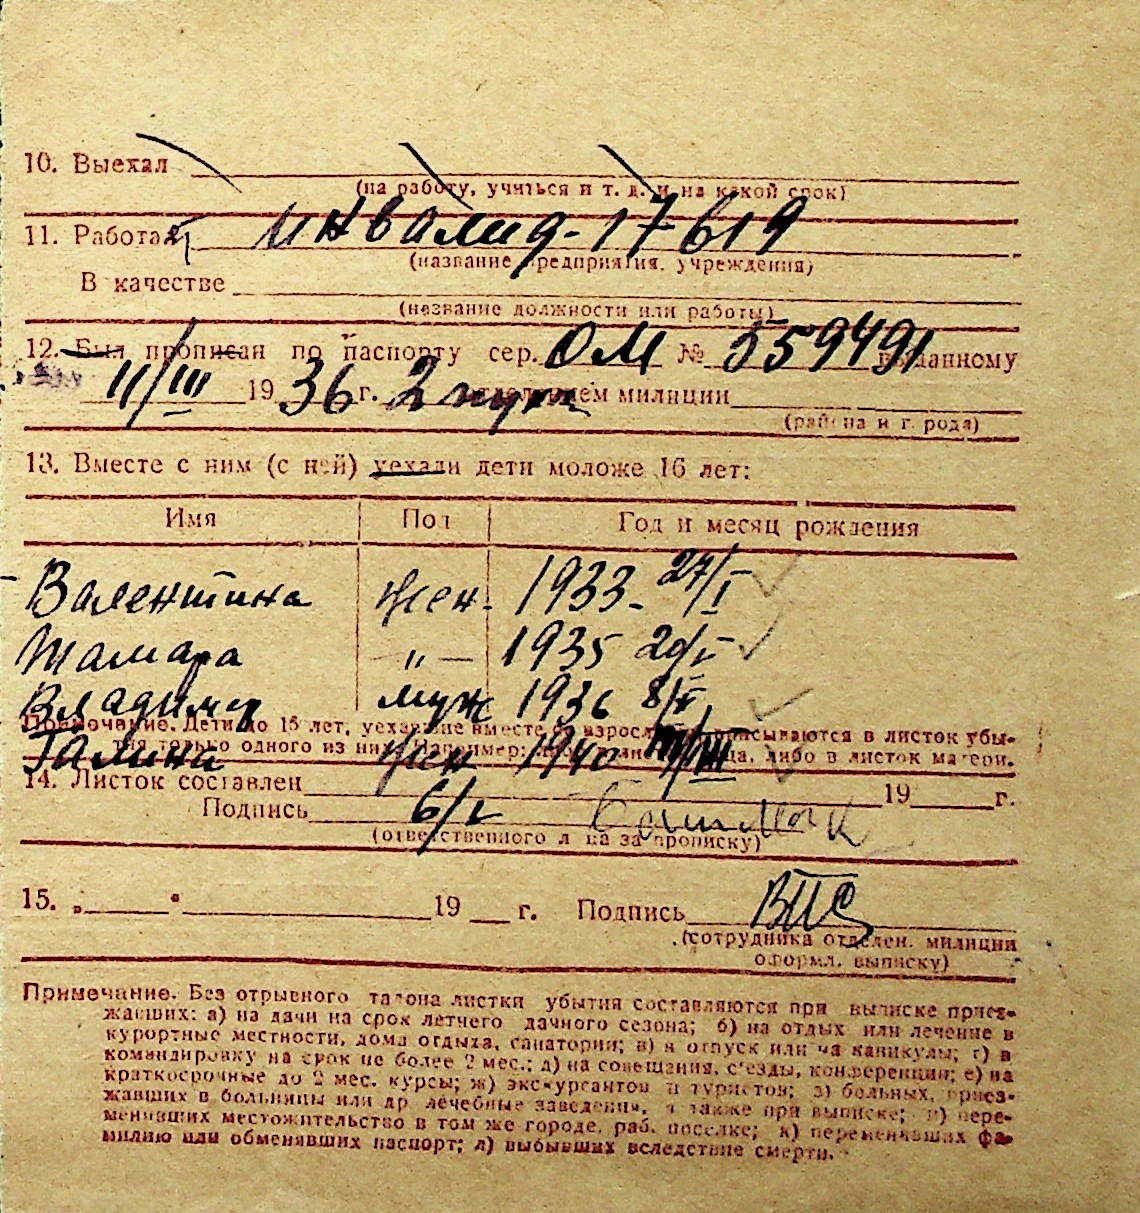 10. Выехал
(на работу, учиться и т. д. и на какой срок)
11. Работает инвалид-17619
(название предприятия, учреждения)
В качестве
(название должности или работы)
12. Был прописан по паспорту сер. ОМ № 559491 выданному
11/III 1936 г. 2 отделением милиции
(района и города)
13. Вместе с ним (с ней) уехали дети моложе 16 лет:
Имя Пол Год и месяц рождения
Валентина жен. 1933- 27/I
Тамара —"— 1935 20/I
Владимир муж 1936 8/
Примечание. Дети до 16 лет, уехавшие вместе со взрослыми, вписываются в листок убы-
тия только одного из них. Например: либо в листок матери.
Галина жен 1940 /III
14. Листок составлен 19 г.
Подпись 6/
(ответственного лица за прописку)
15. „ " 19 г. Подпись
(сотрудника отделен. милиции
оформл. выписку)
Примечание. Без отрывного талона листки убытия составляются при выписке приез-
жавших: а) на дачи на срок летнего дачного сезона; б) на отдых или лечение в
курортные местности, дома отдыха, санатории; в) в отпуск или на каникулы; г) в
командировку на срок не более 2 мес.; д) на совещания, съезды, конференции; е) на
краткосрочные до 2 мес. курсы; ж) экскурсантов и туристов; з) больных, приез-
жавших в больницы или др лечебные заведения, а также при выписке; и) пере-
менивших местожительство в том же городе, раб. поселке; к) переменивших фа-
милию или обменявших паспорт; л) выбывших вследствие смерти.